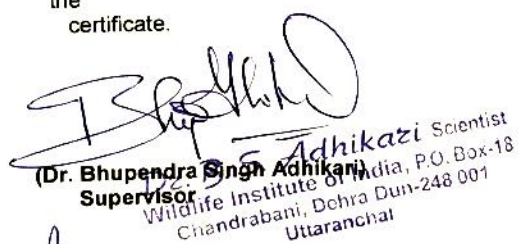 the
certificate.
(Dr. Bhupendra Singh Adhikari)
Supervisor
Dr. B. S. Adhikari Scientist
Wildlife Institute of India, P.O. Box-18
Chandrabani, Dehra Dun-248 001
Uttaranchal